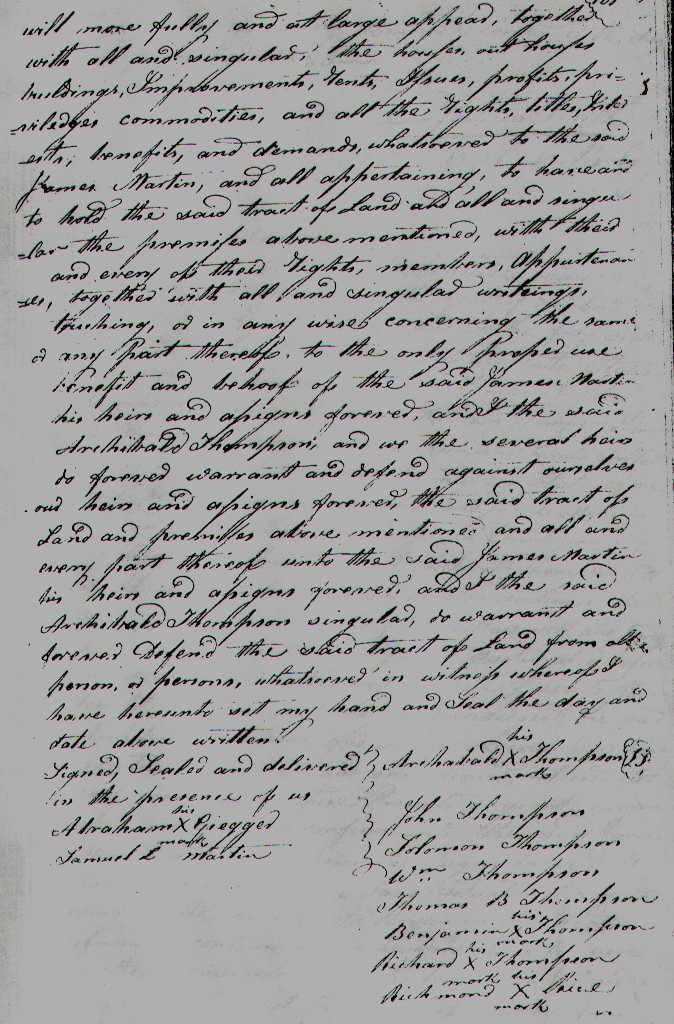 will more fully and at large appear, together
with all and singular, the houses, out houses
buildings, Improvements, rents, Issues, profits, pri-
viledges commodities, and all the rights, titles, Inter
ests, benefits, and demands, whatsoever to the said
James Martin, and all appertaining, to have and
to hold the said tract of Land and all and singu
lar the premises above mentioned, with their
and every of their rights, members, Appurtenan
ses, together with all and singular writeings,
touching, or in any wise concerning the same
or any Part thereof. to the only Proper use
benefit and behoof of the said James Martin
his heirs and asigns forever, and I the said
Archibald Thompson, and we the several heirs
do forever warrant and defend against ourselves
our heirs and asigns forever, the said tract of
Land and premises above mentioned and all and
every part thereof unto the said James Martin
his heirs and asigns forever, and I the said
Archibald Thompson singular, do warrant and
forever Defend the said tract of Land from all
person, or persons, whatsoever in witness whereof I
have hereunto set my hand and Seal the day and
date above written.
Signed, Sealed and delivered
in the presence of us
Abraham his X mark Giegger
Samuel L Martin
Archabald his X mark Thompson
John Thompson
Solomon Thompson
Wm Thompson
Thomas B Thompson
Benjamin his X mark Thompson
Richard his X mark Thompson
Richmond his X mark Price